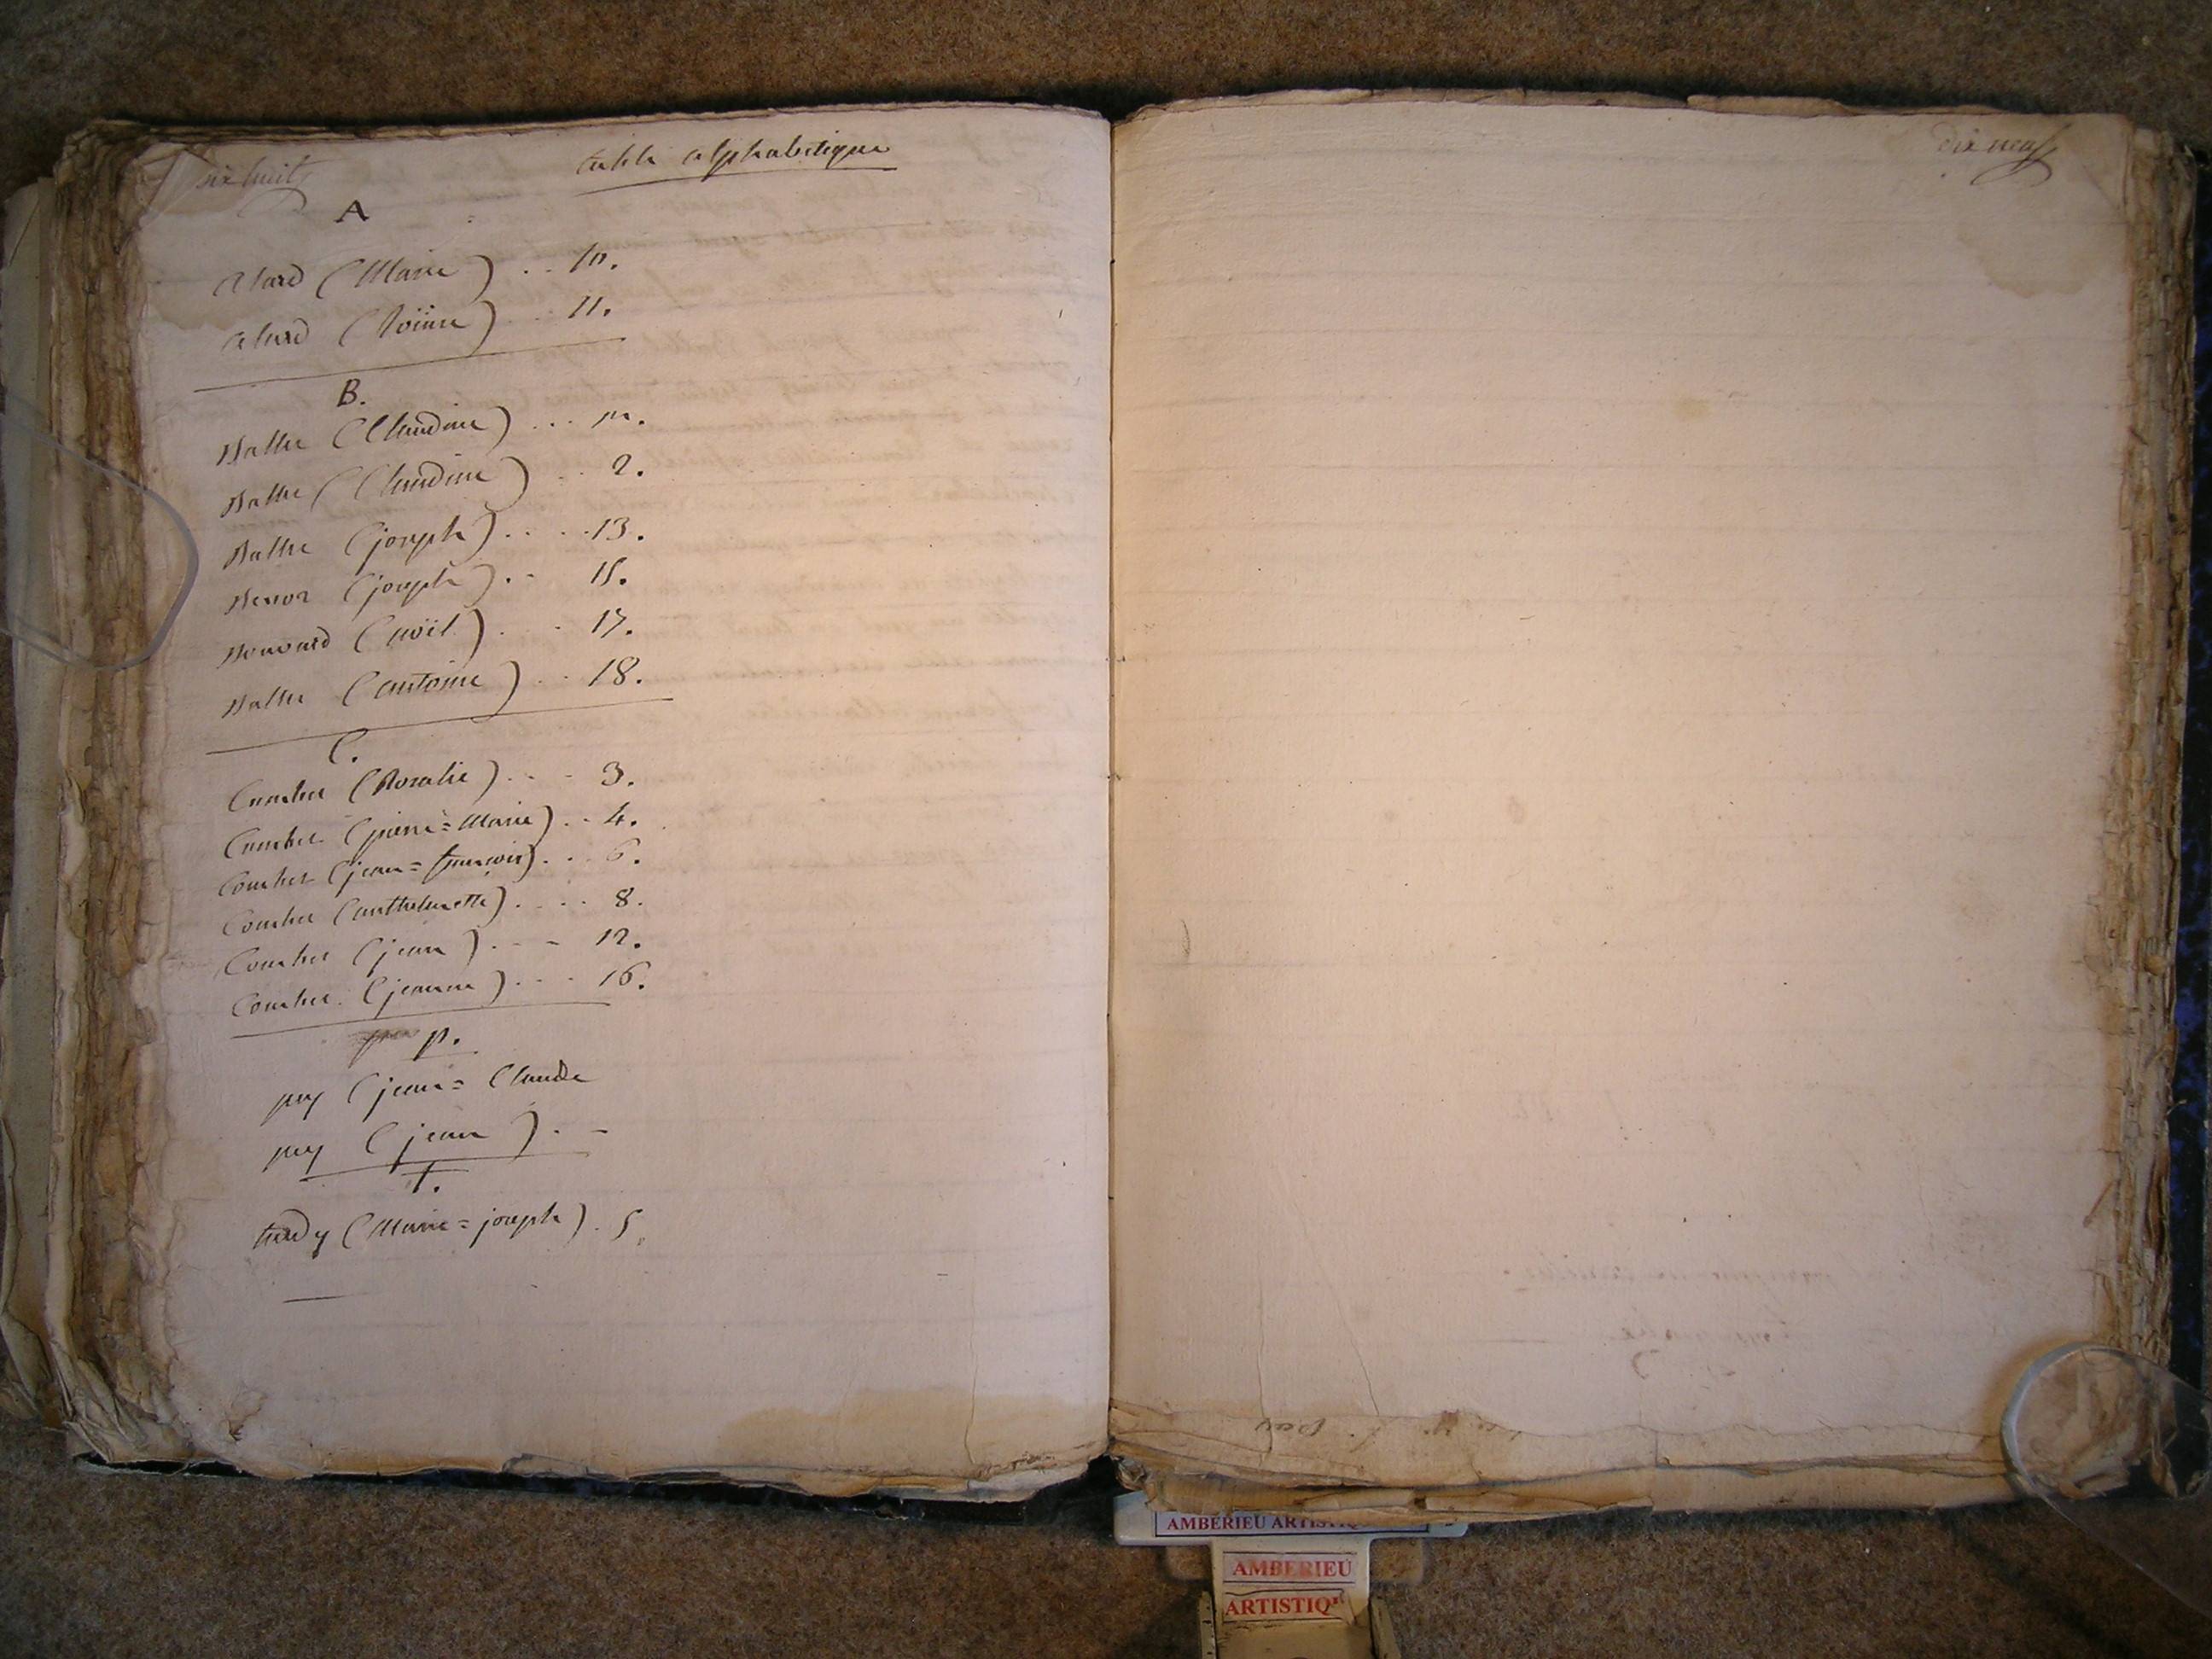 dix huit
table alphabetique
A
alard (Marie) .. 10.
alard (Reine) .. 11.
B.
Balthe (Claudine) ... 1er.
Balthe (Claudine) .. 2.
Balthe (joseph) .... 13.
(joseph) .. 15.
(noël) .. 17.
Balthe (antoine) .. 18.
C.
Combet (Rosalie) ... 3.
Combet (pierre=Marie) .. 4.
Combet (jean=françois) ... 6.
Combet (anthelmette) .... 8.
Combet (jean) ... 12.
Combet (jeanne) ... 16.
p.
puy (jean=Claude
puy (jean) ..
T.
tardy (Marie=joseph) . 5.
dix neuf
AMBÉRIEU
AMBERIEU